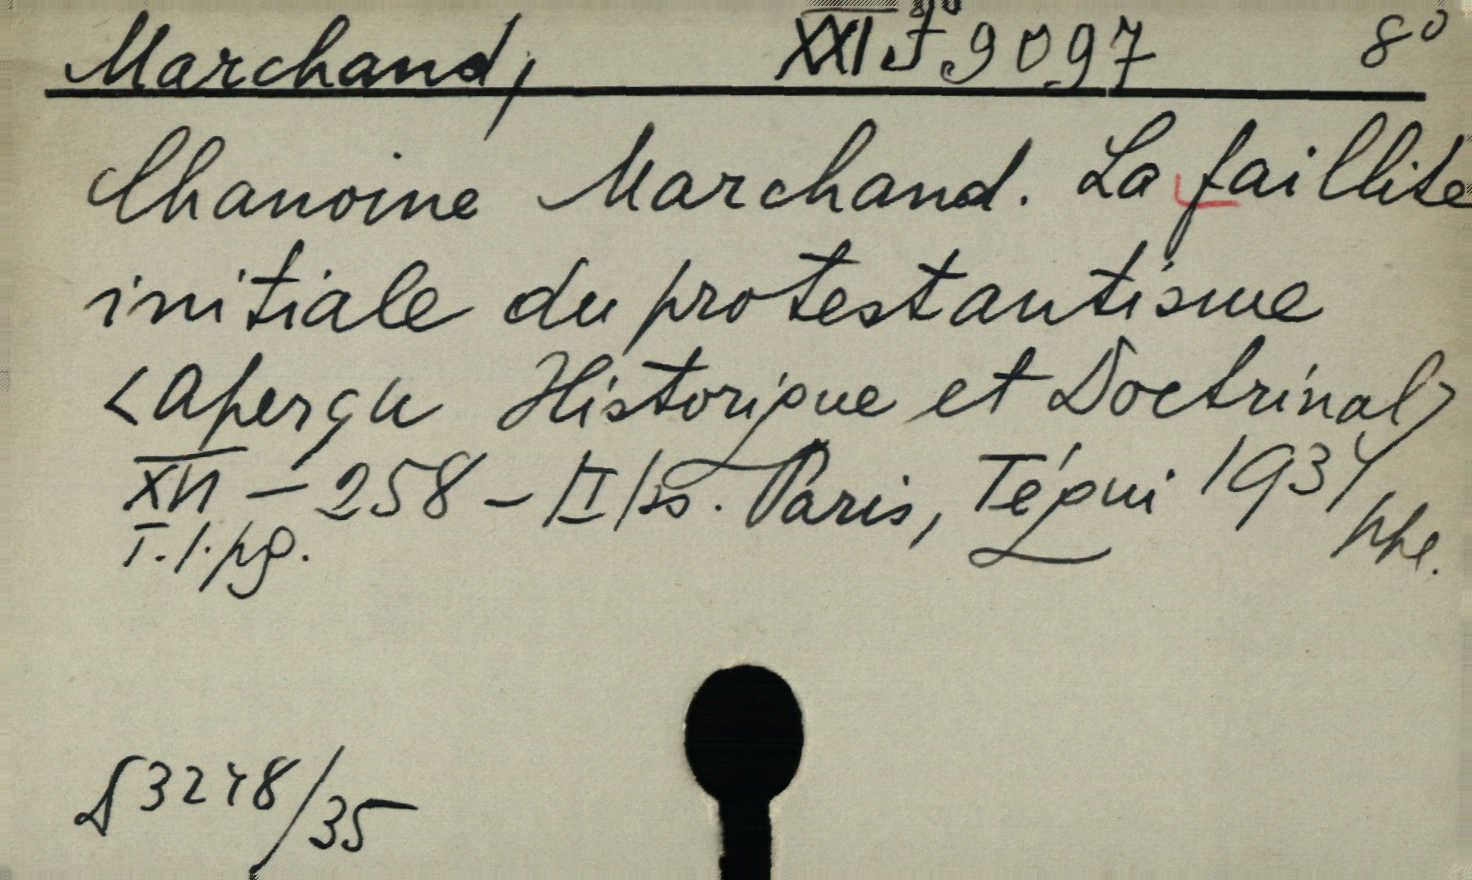 Marchand, XXI J 9097 8°
Chanoine Marchand. La faillite
initiale du protestantisme
<Aperçu Historique et Doctrinal>
XVI – 258 – II ss. Paris, Téqui 1934
T. 1. pg.
S 3248/35